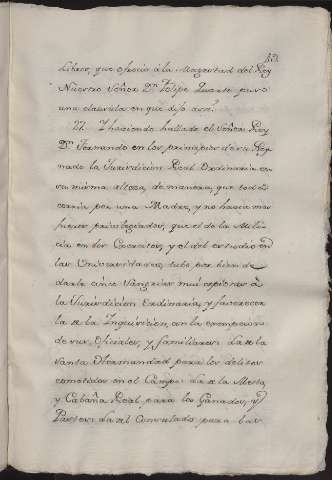 Libros, que ofreció á la Magestad del Rey
Nuestro Señor Dn. Felipe Quarto puso
una clausula en que dijo assi:
27. Y haviendo hallado el Señor Rey
Dn. Fernando en los principios de su Rey-
nado la Jurisdicion Real Ordinaria en
su misma alteza, de manera, que todo
corria por una Madre, y no havia mas
fueros privilegiados, que el de la Mili-
cia en los Exercitos, y el del estudio en
las Universidades, tubo por bien de
darla cinco sangrias mui copiosas á
la Jurisdicion Ordinaria, y favorecer
la de la Inquisicion, con la exempcion
de sus Oficiales, y familiares: la de la
Santa Hermandad para los delitos
cometidos en el Campo: la de la Mesta,
y Cabaña Real, para los Ganados, y
Pastos: la del Consulado para las